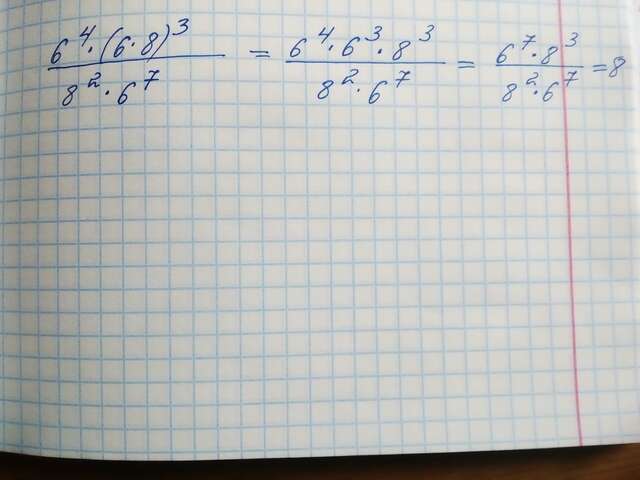 6^4·(6·8)^3 / 8^2·6^7 = 6^4·6^3·8^3 / 8^2·6^7 = 6^7·8^3 / 8^2·6^7 = 8